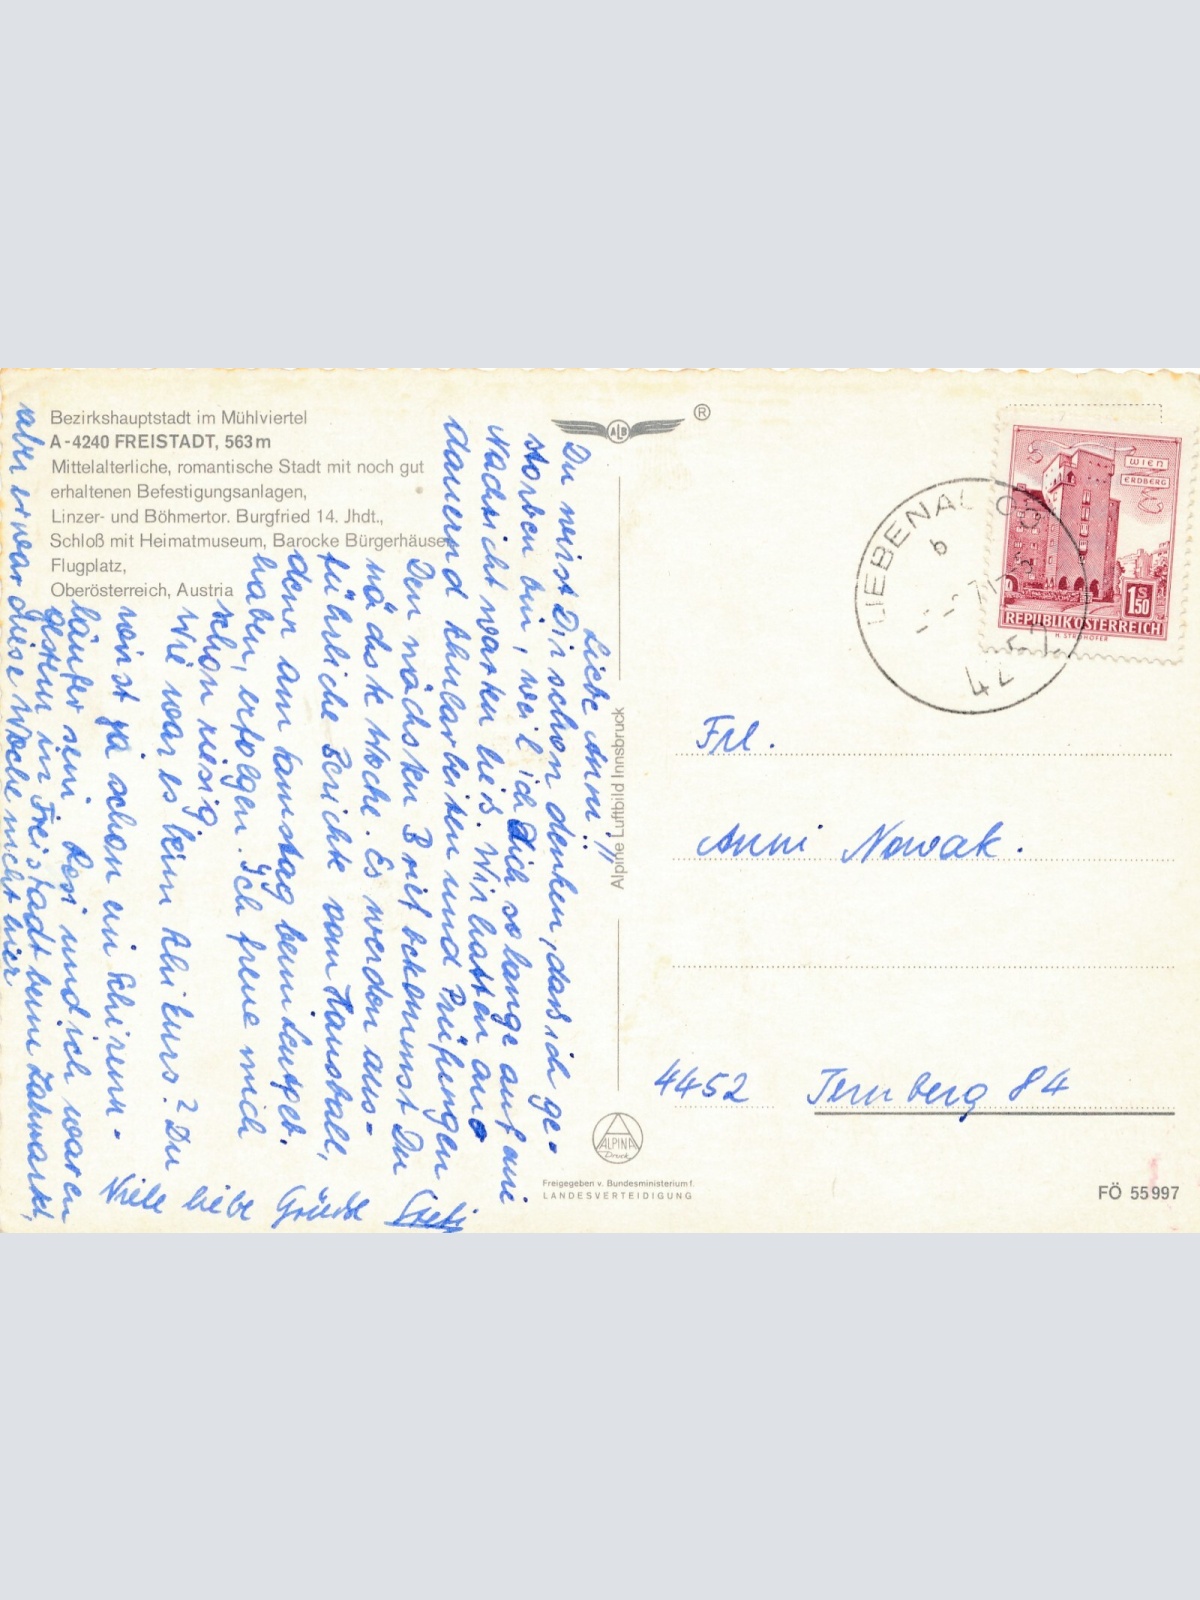 Bezirkshauptstadt im Mühlviertel
A-4240 FREISTADT, 563m
Mittelalterliche, romantische Stadt mit noch gut
erhaltenen Befestigungsanlagen,
Linzer- und Böhmertor. Burgfried 14. Jhdt.,
Schloß mit Heimatmuseum, Barocke Bürgerhäuser
Flugplatz,
Oberösterreich, Austria
Liebe Anni!!
Du wirst Dir schon denken, daß ich ge-
storben bin, weil ich Dich so lange auf eine
Nachricht warten ließ. Wir hatten
dauernd Schularbeiten und Prüfungen
Den nächsten Brief bekommst Du
nächste Woche. Es werden aus-
führliche Berichte vom Hausball,
denn am Samstag beim
haben, erfolgen. Ich freue mich
schon riesig
Wie war es beim Schikurs? Du
wirst ja schon ein Schirenn-
läufer sein. Resi und ich waren
gestern in Freistadt beim Jahrmarkt,
aber er war diese Woche nicht hier
Viele liebe Grüße
ALB
®
Alpine Luftbild Innsbruck
ALPINA
Druck
Freigegeben v. Bundesministerium f.
LANDESVERTEIDIGUNG
WIEN
ERDBERG
1 S 50
REPUBLIK ÖSTERREICH
H. STROHOFER
LIEBENAU
b
42
Frl.
Anni Nowak.
4452 Ternberg 84
FÖ 55997